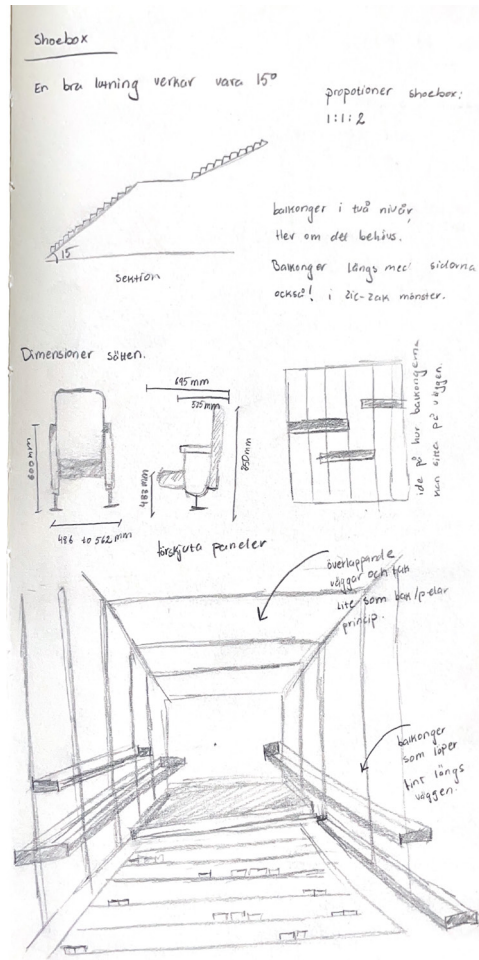 Shoebox
En bra lutning verkar vara 15°
propotioner shoebox:
1:1:2
15
Sektion
balkonger i två nivår,
fler om det behövs.
Balkonger längs med sidorna
också! i zic-zak mönster.
Dimensioner säten.
600mm
486 to 562 mm
695 mm
525mm
483 mm
850mm
ide på hur balkongerna
kan sitta på väggen.
förskjuta paneler
överlappande
väggar och tak
lite som balk/pelar
princip.
balkonger
som löper
fint längs
väggen.